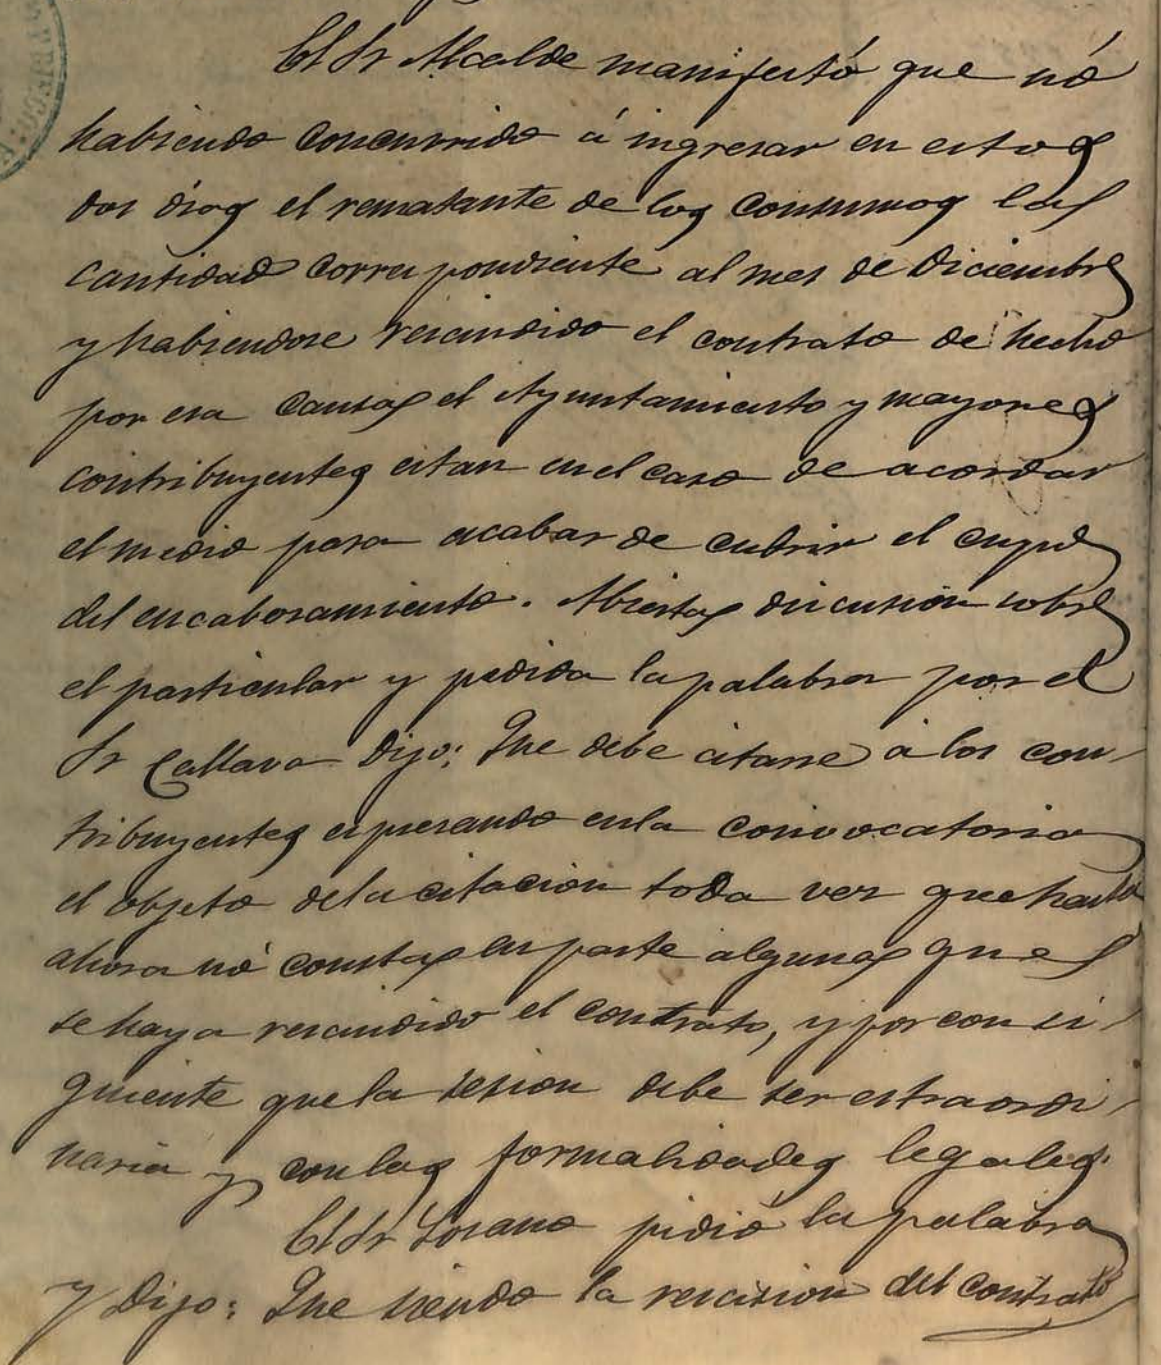 El Sr Alcalde manifestó que nó
habiendo concurrido á ingresar en estos
dos dias el rematante de los consumos la
cantidad correspondiente al mes de Diciembre
y habiendose rescindido el contrato de hecho
por esa causa el Ayuntamiento y mayores
contribuyentes estan en el caso de acordar
el medio para acabar de cubrir el cupo
del encabezamiento. Abierta discusion sobre
el particular y pedida la palabra por el
Sr Callava Dijo: Que debe citarse á los con-
tribuyentes espresando en la convocatoria
el objeto de la citacion toda vez que hasta
ahora nó consta en parte alguna que
se haya rescindido el contrato, y por consi-
guiente que la sesion debe ser estraordi-
naria y con las formalidades legales.
El Sr Lozano pidió la palabra
y Dijo: Que siendo la rescision del contrato